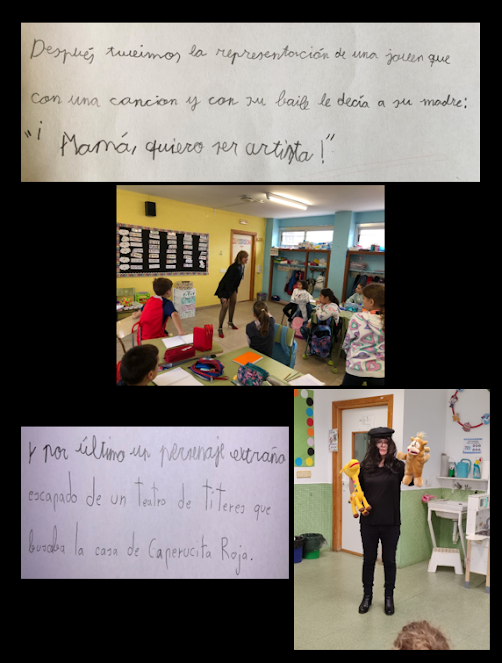 Después tuvimos la representación de una joven que
con una cancion y con su baile le decía a su madre:
"¡ Mamá, quiero ser artista!"
Y por último un personaje extraño
escapado de un teatro de títeres que
buscaba la casa de Caperucita Roja.